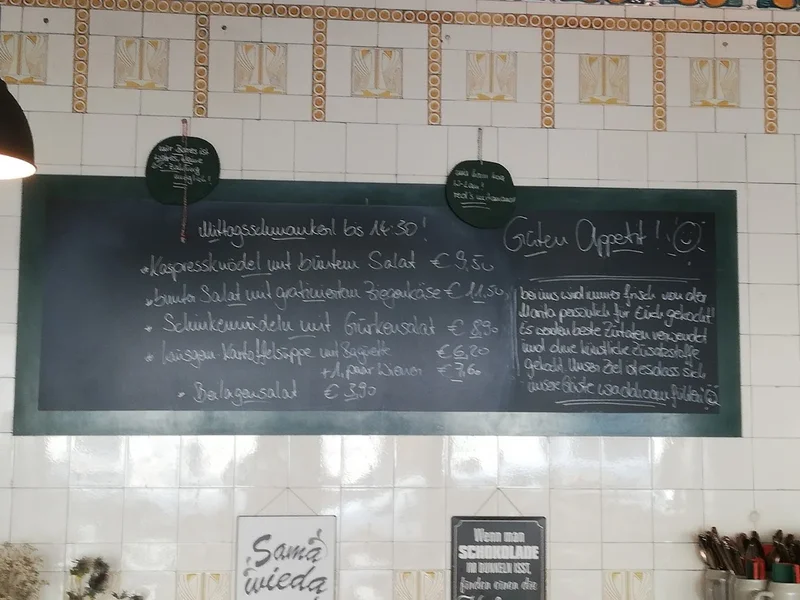 wir
möglich!
Mittagsschmankerl bis 14:30!
* Kaspressknödel mit buntem Salat € 9,50
* bunter Salat mit gratiniertem Ziegenkäse € 11,50
* Schinkennudeln mit Gurkensalat € 8,90
* hausgem. Kartoffelsuppe mit Baguette € 6,20
+ 1 paar Wiener € 7,60
* Beilagensalat € 3,90
Guten Appetit!
bei uns wird immer frisch von der
persönlich für Euch gekocht!
Es werden beste Zutaten verwendet
und ohne künstliche Zusatzstoffe
gekocht. Unser Ziel ist es dass sich
unsere Gäste fühlen
Sama
wieda
Wenn man
SCHOKOLADE
IM DUNKELN ISST,
finden einen die